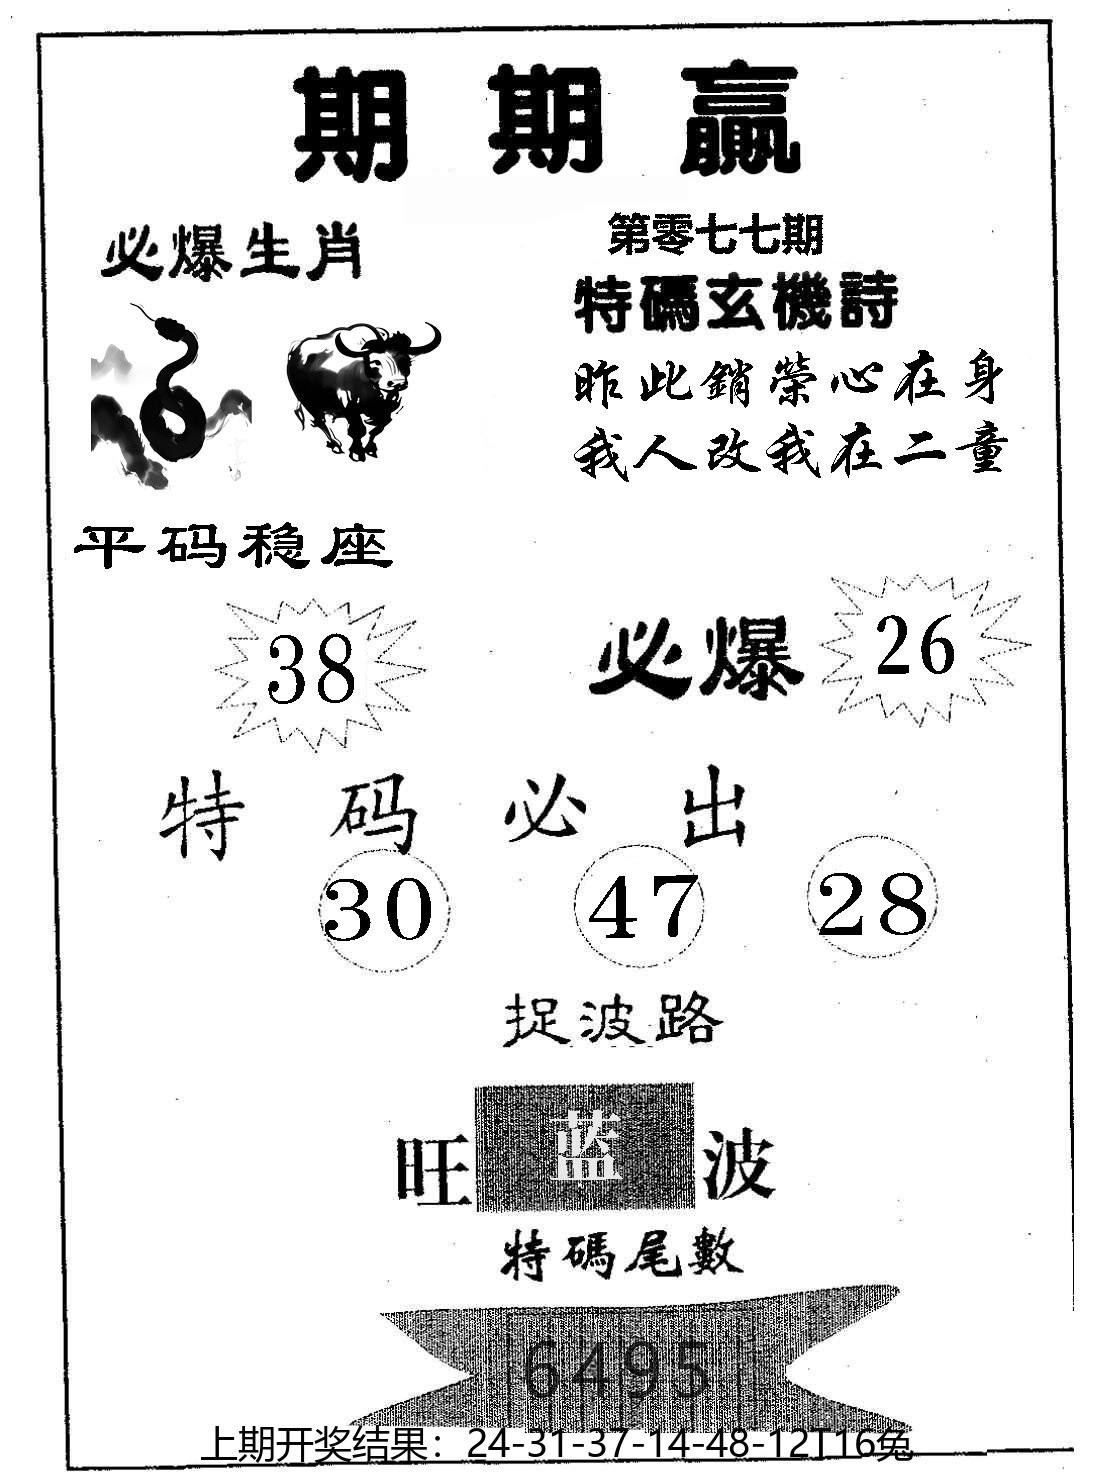 期期贏
必爆生肖
第零七七期
特碼玄機詩
昨此銷榮心在身
我人改我在二童
平码稳座
38
必爆
26
特码必出
30 47 28
捉波路
旺蓝波
特碼尾數
6495
上期开奖结果：24-31-37-14-48-12T16兔